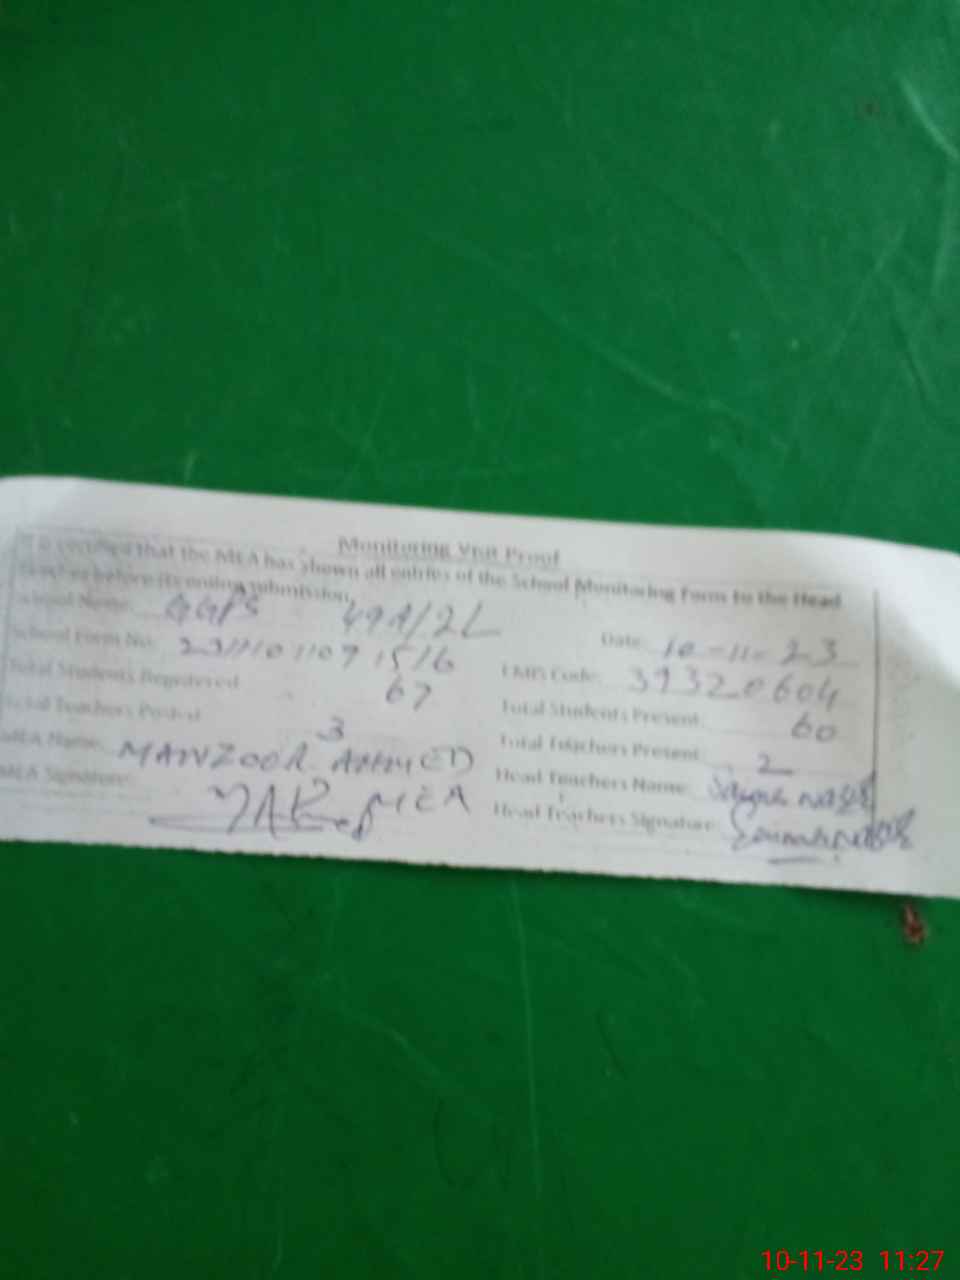 Monitoring Visit Proof
It is certified that the MEA has shown all entries of the School Monitoring Form to the Head
Teacher before its online submission.
School Name: GGPS 49A/2L Date: 10-11-23
School Form No: EMIS Code: 39320604
Total Students Registered 67 Total Students Present: 60
Total Teachers Posted 3 Total Teachers Present: 2
MEA Name: MANZOOR AHMED Head Teachers Name:
MEA Signature: MEA Head Teachers Signature:
10-11-23 11:27